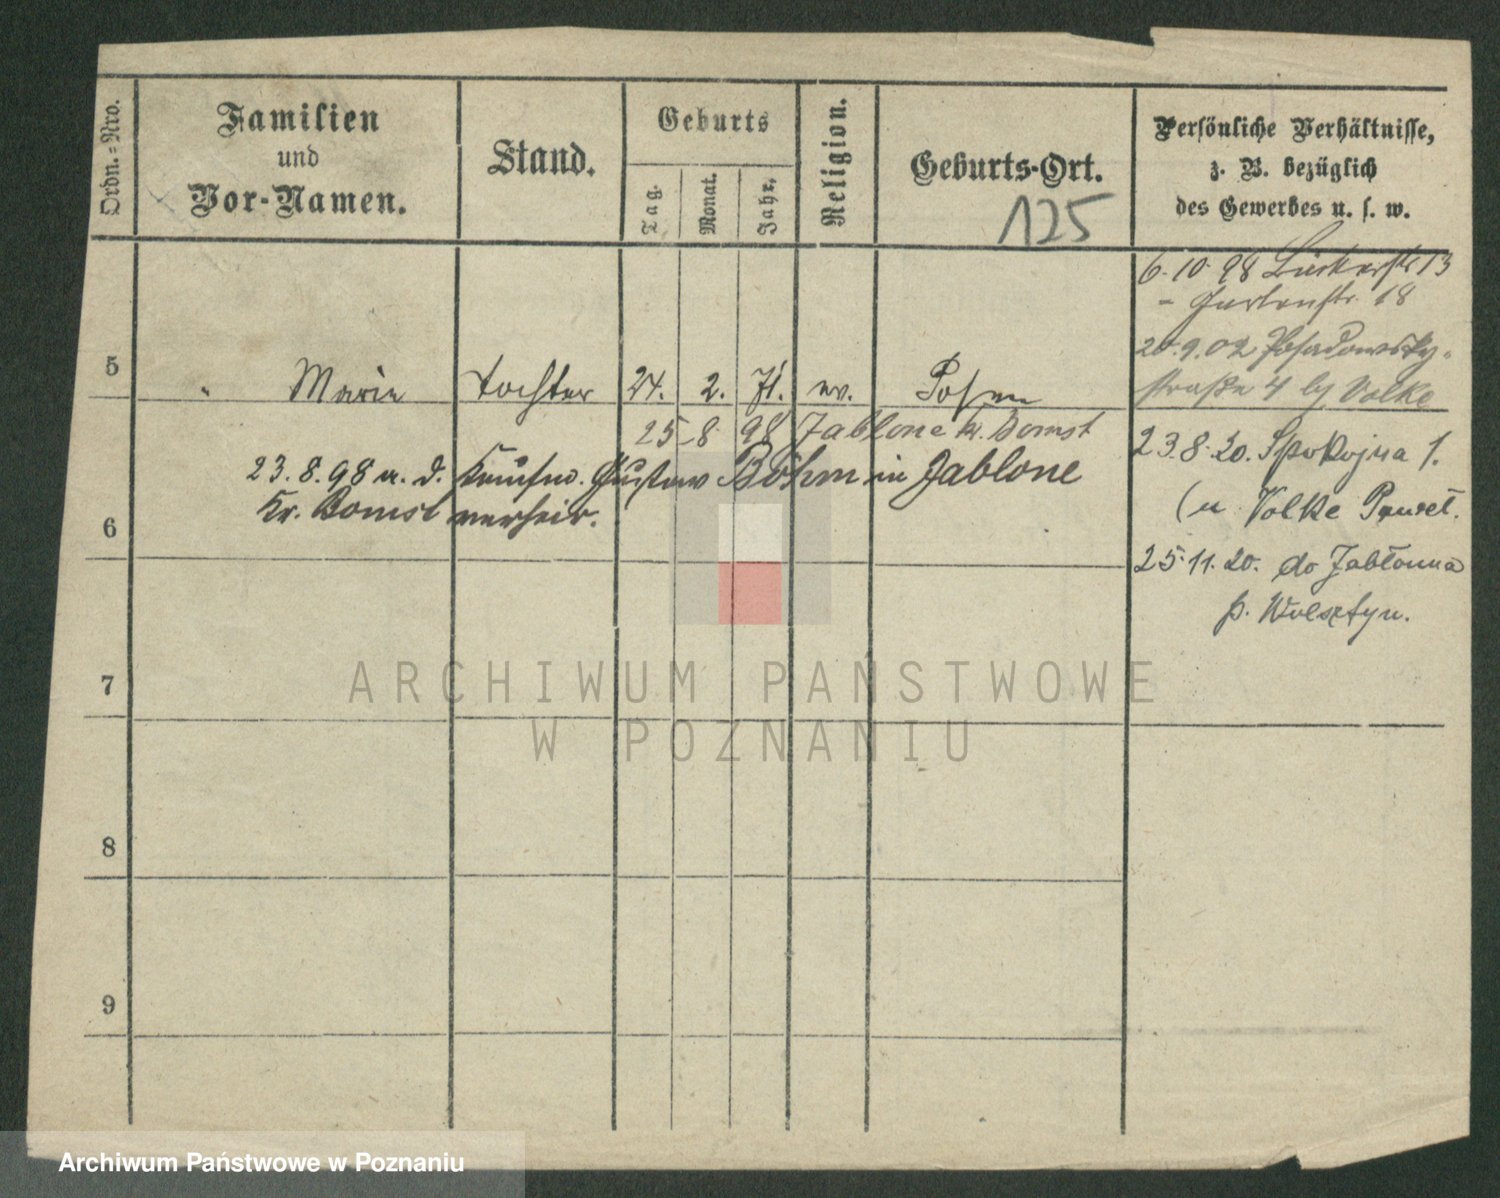 Ordn.-Nro.
Familien
und
Vor-Namen.
Stand.
Geburts
Tag.
Monat.
Jahr.
Religion.
Geburts-Ort.
125
Persönliche Verhältnisse,
z. B. bezüglich
des Gewerbes u. s. w.
6.10.98 13
- Gartenstr. 18
20.9.02 Posadowsky-
straße 4 by Volke
5 " Marie Tochter 24. 2. 71. ev. Posen
25 8 98 Jablone Kr. Bomst
23.8.98 m. d. Kaufm. Gustav Böhm in Jablone
Kr. Bomst verheir.
6
23.8.20. Spokojna 1.
(u Volke
25.11.20. do Jabłonna
p. Wolsztyn.
7
8
9
ARCHIWUM PAŃSTWOWE
W POZNANIU
Archiwum Państwowe w Poznaniu